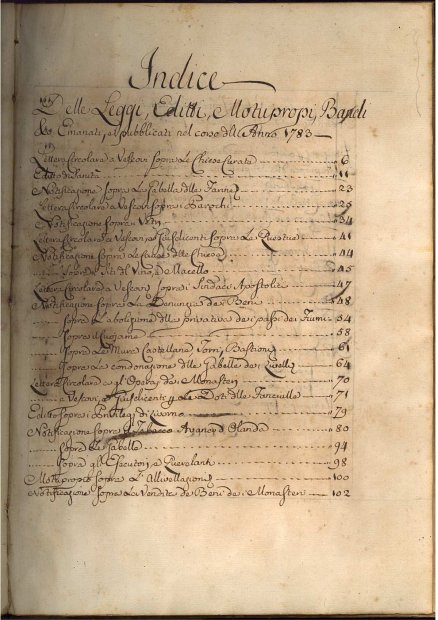 Indice
Delle Leggi, Editti, Motupropj, Bandi
&c. Emanati, e pubblicati nel corso dell' Anno 1783
Lettera Circolare a Vescovi sopra le Chiese Curate 6
Editto di Sanità 11
Notificazione Sopra La Gabella delle Farine 23
Lettera Circolare a Vescovi sopra i Parochi 25
Notificazione sopra i Vetri 34
Lettera Circolare a Vescovi, e Giusdicenti sopra le Questue 41
Notificazione sopra le delle Chiese 44
Sopra i del Vino, e Macello 45
Lettera Circolare a Vescovi sopra di Sindaci Apostolici 47
Notificazione sopra La Denunzia de Beni 48
sopra L'abolizione delle privative dei passi dei Fiumi 54
sopra il Cuojame 58
sopra le Mura Castellane, Torri, Bastioni 61
sopra La condonazione delle Gabelle dei 64
Lettera Circolare agl' Operaj dei Monasteri 70
a Vescovi, e Giusdicenti p. le Doti delle Fanciulle 71
Editto sopra i Privilegj di Livorno 79
Notificazione sopra il Tabacco Avana, d'Olanda 80
sopra le Gabelle 94
sopra gli Esecutori, e Querelanti 98
Motuproprio sopra L'Allivellazioni 100
Notificazione sopra La Vendita de Beni dei Monasteri 102